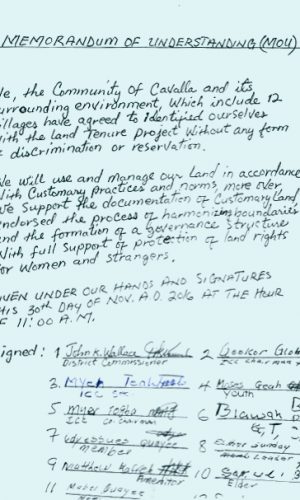 MEMORANDUM OF UNDERSTANDING (MOU)
We, the Community of Cavalla and its
surrounding environment, Which include 12
villages have agreed to Identified ourselves
with the land Tenure Project Without any form
of discrimination or reservation.
We will use and manage our Land in accordance
With Customary practices and norms, more over
We Support the documentation of Customary Land,
endorsed the process of harmonizing boundaries
and the formation of a governance structure
With full Support of protection of land rights
for Women and Strangers.
GIVEN UNDER OUR HANDS AND SIGNATURES
THIS 30th DAY OF NOV. A.D. 2016 AT THE HOUR
OF 11:00 A.M.
Signed: 1 John K. Wallace 2
District Commissioner
3. Myer 4 Moses Geah
Youth
5 Myer 6
Member
7 8
9 Matthew 10
Elder
11